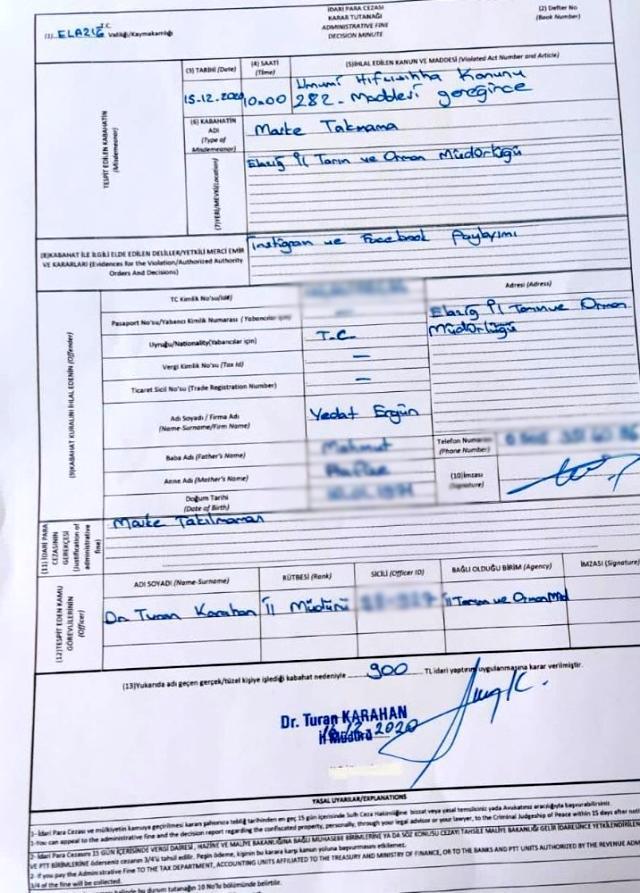 İDARİ PARA CEZASI
KARAR TUTANAĞI
ADMINISTRATIVE FINE
DECISION MINUTE
(2) Defter No
(Book Number)
(1) ELAZIĞ T.C. Valiliği/Kaymakamlığı
(3) TARİHİ (Date)
(4) SAATİ (Time)
(5)İHLAL EDİLEN KANUN VE MADDESİ (Violated Act Number and Article)
15.12.2020
10:00
Umumi Hıfzısıhha Kanunu
282. Maddesi gereğince
TESPİT EDİLEN KABAHATİN
(Misdemeanor)
(6) KABAHATİN ADI
(Type of Misdemeanor)
Maske Takmama
(7)YERİ/MEVKİ(Location)
Elazığ İl Tarım ve Orman Müdürlüğü
(8)KABAHAT İLE İLGİLİ ELDE EDİLEN DELİLLER/YETKİLİ MERCİ EMİR
VE KARARLARI (Evidences for the Violation/Authorized Authority
Orders And Decisions)
İnstigran ve Facebook Paylaşımı
(9)KABAHAT KURALINI İHLAL EDENİN (Offender)
TC Kimlik No'su(Id#)
Adresi (Adress)
Pasaport No'su/Yabancı Kimlik Numarası (Yabancılar için)
Elazığ İl Tarım ve Orman
Müdürlüğü
Uyruğu/Nationality(Yabancılar için)
T.C.
Vergi Kimlik No'su (Tax Id)
—
Ticaret Sicil No'su (Trade Registration Number)
—
Adı Soyadı / Firma Adı
(Name-Surname/Firm Name)
Vedat Ergün
Baba Adı (Father's Name)
Telefon Numarası
(Phone Number)
Anne Adı (Mother's Name)
(10)İmzası
(Signature)
Doğum Tarihi
(Date of Birth)
(11) İDARİ PARA
CEZASININ
GEREKÇESİ
(Justification of
administrative
fine)
Maske Takılmaması
(12)TESPİT EDEN KAMU
GÖREVLİLERİNİN
(Officer)
ADI SOYADI (Name-Surname)
RÜTBESİ (Rank)
SİCİLİ (Officer ID)
BAĞLI OLDUĞU BİRİM (Agency)
İMZASI (Signature)
Dr. Turan Karahan
İl Müdürü
İl Tarım ve Orman Müd
(13)Yukarıda adı geçen gerçek/tüzel kişiye işlediği kabahat nedeniyle 900 TL idari yaptırım uygulanmasına karar verilmiştir.
Dr. Turan KARAHAN
İl Müdürü
2020
YASAL UYARILAR/EXPLANATIONS
1- İdari Para Cezası ve mülkiyetin kamuya geçirilmesi kararı şahsınıza tebliğ tarihinden en geç 15 gün içerisinde Sulh Ceza Hakimliğine bizzat veya yasal temsilciniz yada Avukatınız aracılığıyla başvurabilirsiniz.
1-You can appeal to the administrative fine and the decision report regarding the confiscated property, personally, through your legal advisor or your lawyer, to the Criminal Judgeship of Peace within 15 days after
2- İdari Para Cezasını 15 GÜN İÇERİSİNDE VERGİ DAİRESİ, HAZİNE VE MALİYE BAKANLIĞINA BAĞLI MUHASEBE BİRİMLERİNE YA DA SÖZ KONUSU CEZAYI TAHSİLE MALİYE BAKANLIĞI GELİR İDARESİNCE
VE PTT BİRİMLERİNE öderseniz cezanın 3/4'ü tahsil edilir. Peşin ödeme, kişinin bu karara karşı kanun yoluna başvurmasını etkilemez.
2- If you pay the Administrative Fine TO THE TAX DEPARTMENT, ACCOUNTING UNITS AFFILIATED TO THE TREASURY AND MINISTRY OF FINANCE, OR TO THE BANKS AND PTT UNITS AUTHORIZED BY THE REVENUE
3/4 of the fine will be collected.
bu durum tutanağın 10 No'lu bölümünde belirtilir.